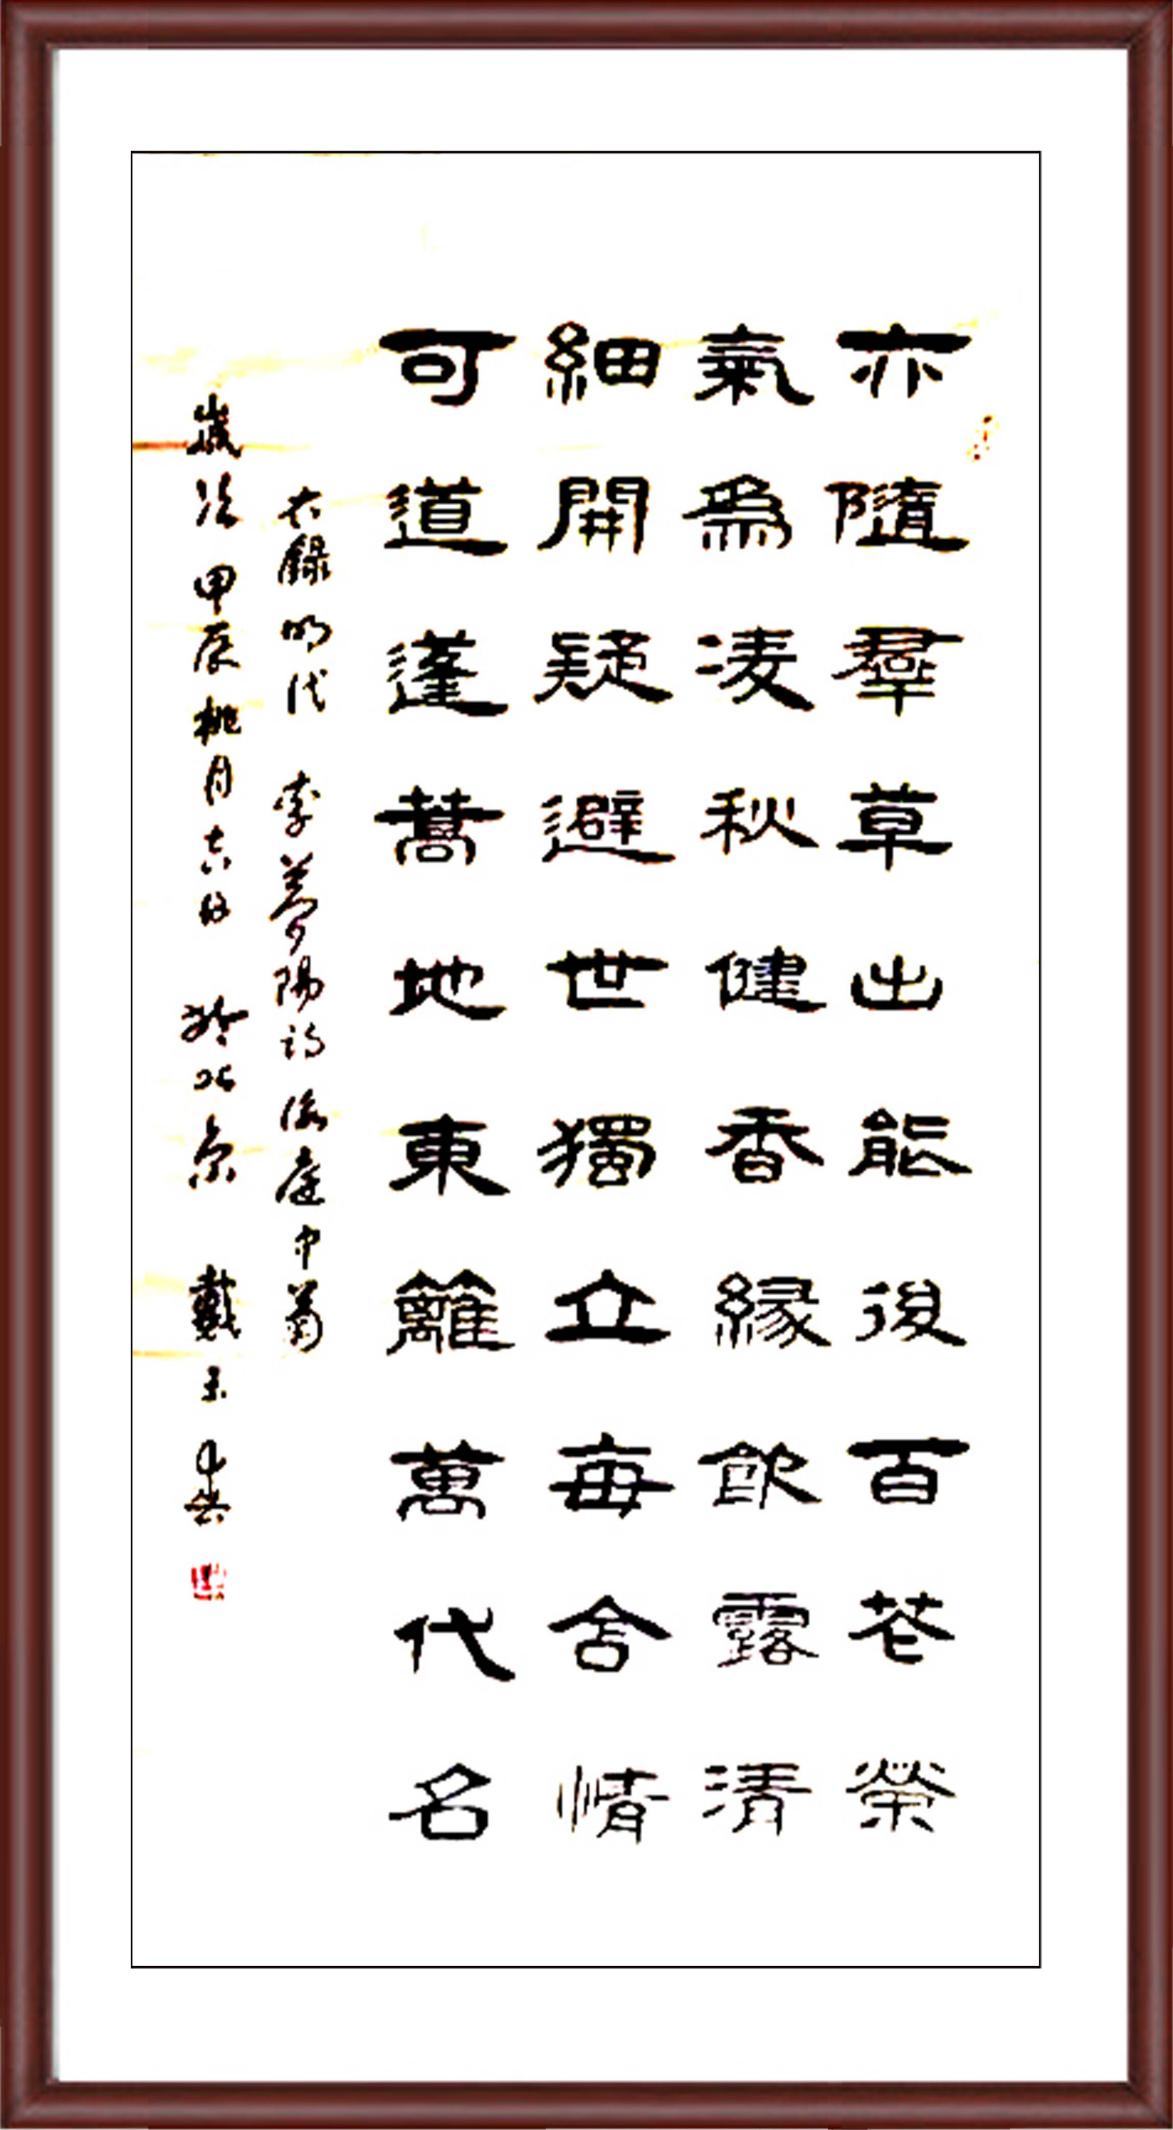 亦隨羣草出能後百花榮
氣爲凌秋健香緣飲露清
細開疑避世獨立每含情
可道蓬蒿地東籬萬代名
右録明代 李夢陽詩詠庭中菊
歲次甲辰桃月 於北京 戴